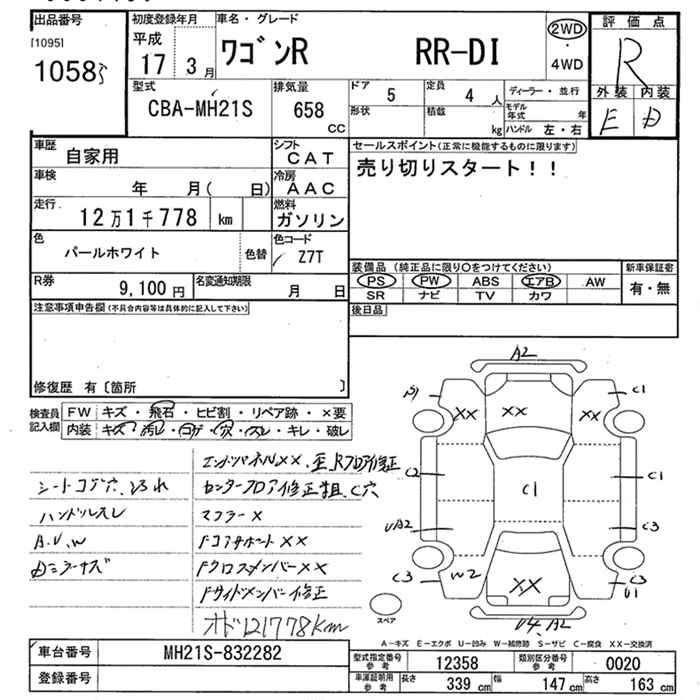 出品番号
[1095]
1058
初度登録年月
平成
17 3月
車名・グレード
ワゴンR RR-DI
2WD
・
4WD
評価点
R
外装 内装
E D
型式
CBA-MH21S
排気量
658
CC
ドア 5
形状
定員 4 人
積載 kg
ディーラー・並行
モデル年式 年
ハンドル 左・右
車歴
自家用
シフト
CAT
車検
年 月( 日)
冷房
AAC
走行
12万1千778 km
燃料
ガソリン
色
パールホワイト
色替
色コード
Z7T
R券
9,100円
名変通知期限
月 日
セールスポイント(正常に機能するものに限ります)
売り切りスタート!!
装備品(純正品に限り○をつけてください)
PS PW ABS エアB AW
SR ナビ TV カワ
新車保証書
有・無
後日品
注意事項申告欄(不具合内容等は具体的に記入して下さい)
修復歴 有〔箇所 〕
検査員
記入欄
FW キズ・飛石・ヒビ割・リペア跡・×要
内装 キズ・汚レ・コゲ・穴・スレ・キレ・破レ
エンドパネルXX、
RフロアΙ修正
シートコゲ穴、
センターフロア修正
C穴
ハンドルスレ
マフラーX
A.U.W
FコアサポートXX
FクロスメンバーXX
Fサイドメンバー修正
オド121778km
A2
C1
XX
XX
XX
C2
C1
C1
UA2
C3
C3
W2
XX
C3
U1
U4.A2
スペア
A-キズ E-エクボ U-凹み W-補修跡 S-サビ C-腐食 XX-交換済
車台番号
MH21S-832282
登録番号
型式指定番号
参考
12358
類別区分番号
参考
0020
車庫証明用
参考
長さ 339 cm 幅 147 cm 高さ 163 cm